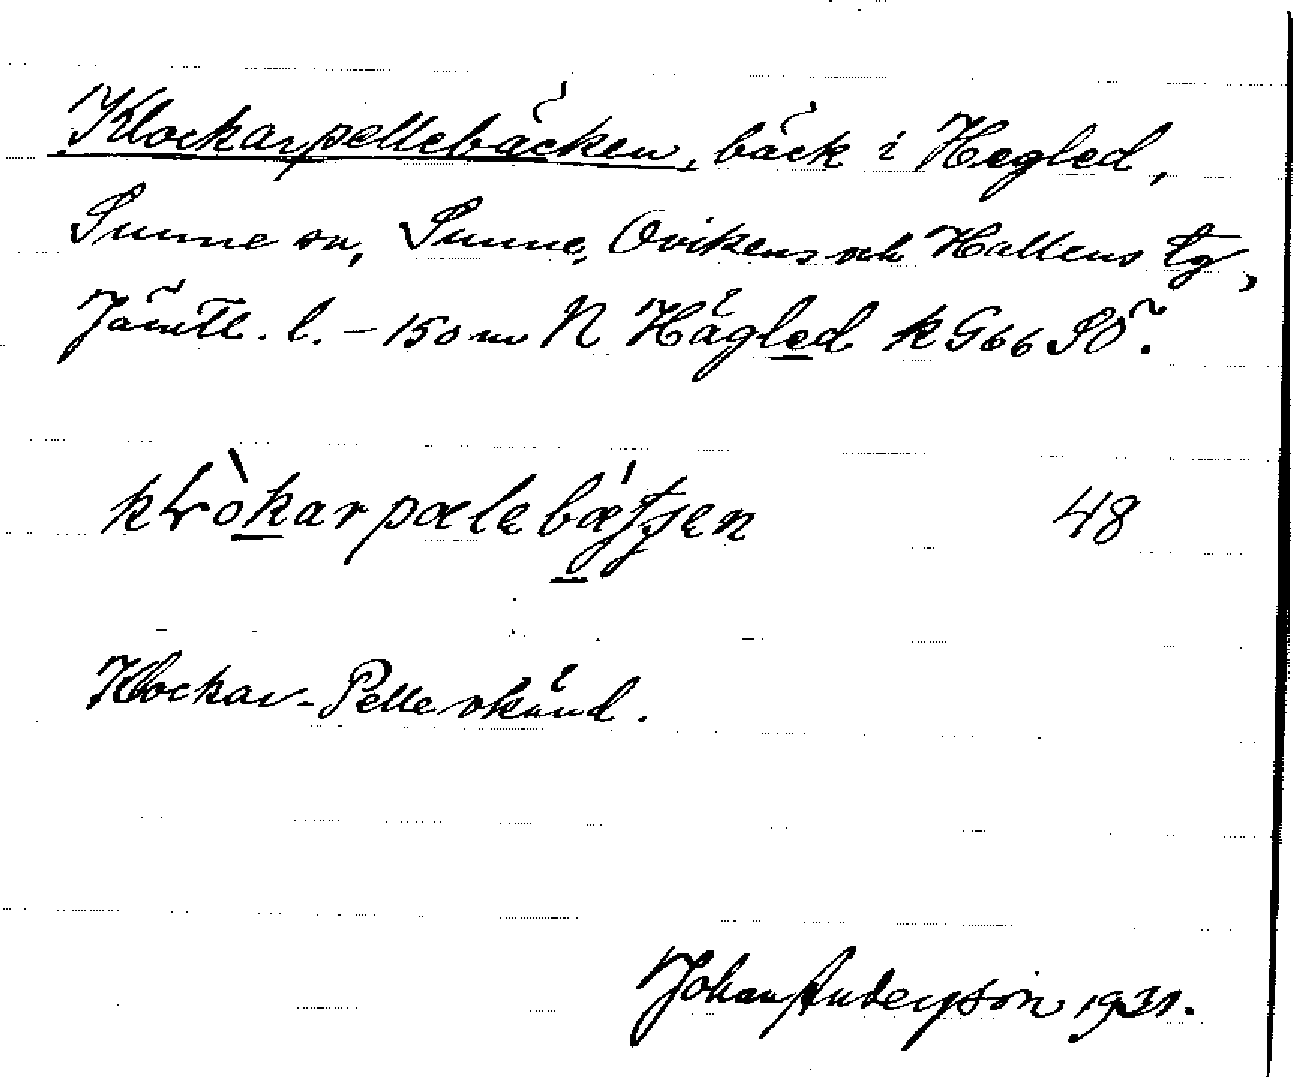 Klockarpellebäcken, bäck i Hegled,
Sunne sn, Sunne, Ovikens och Hallens tg,
Jämtl. l. – 150 m N Hägled k G66 SÖ.
48
Klockar-Pelle okänd.
Johan Anderson 1931.